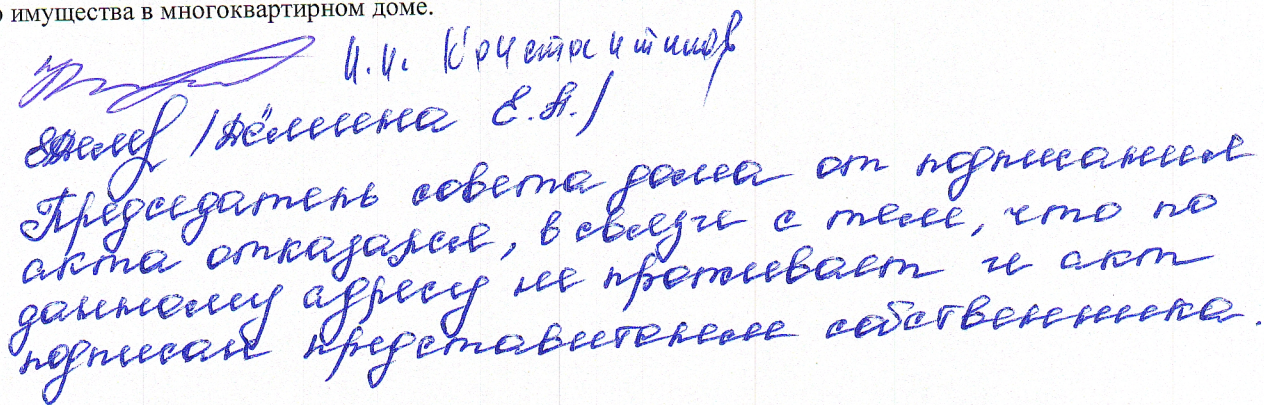 о имущества в многоквартирном доме.
И.И. Константинов
/Дёмина Е.А./
Председатель совета дома от подписания
акта отказался, в связи с тем, что по
данному адресу не проживает и акт
подписан представителем собственника.